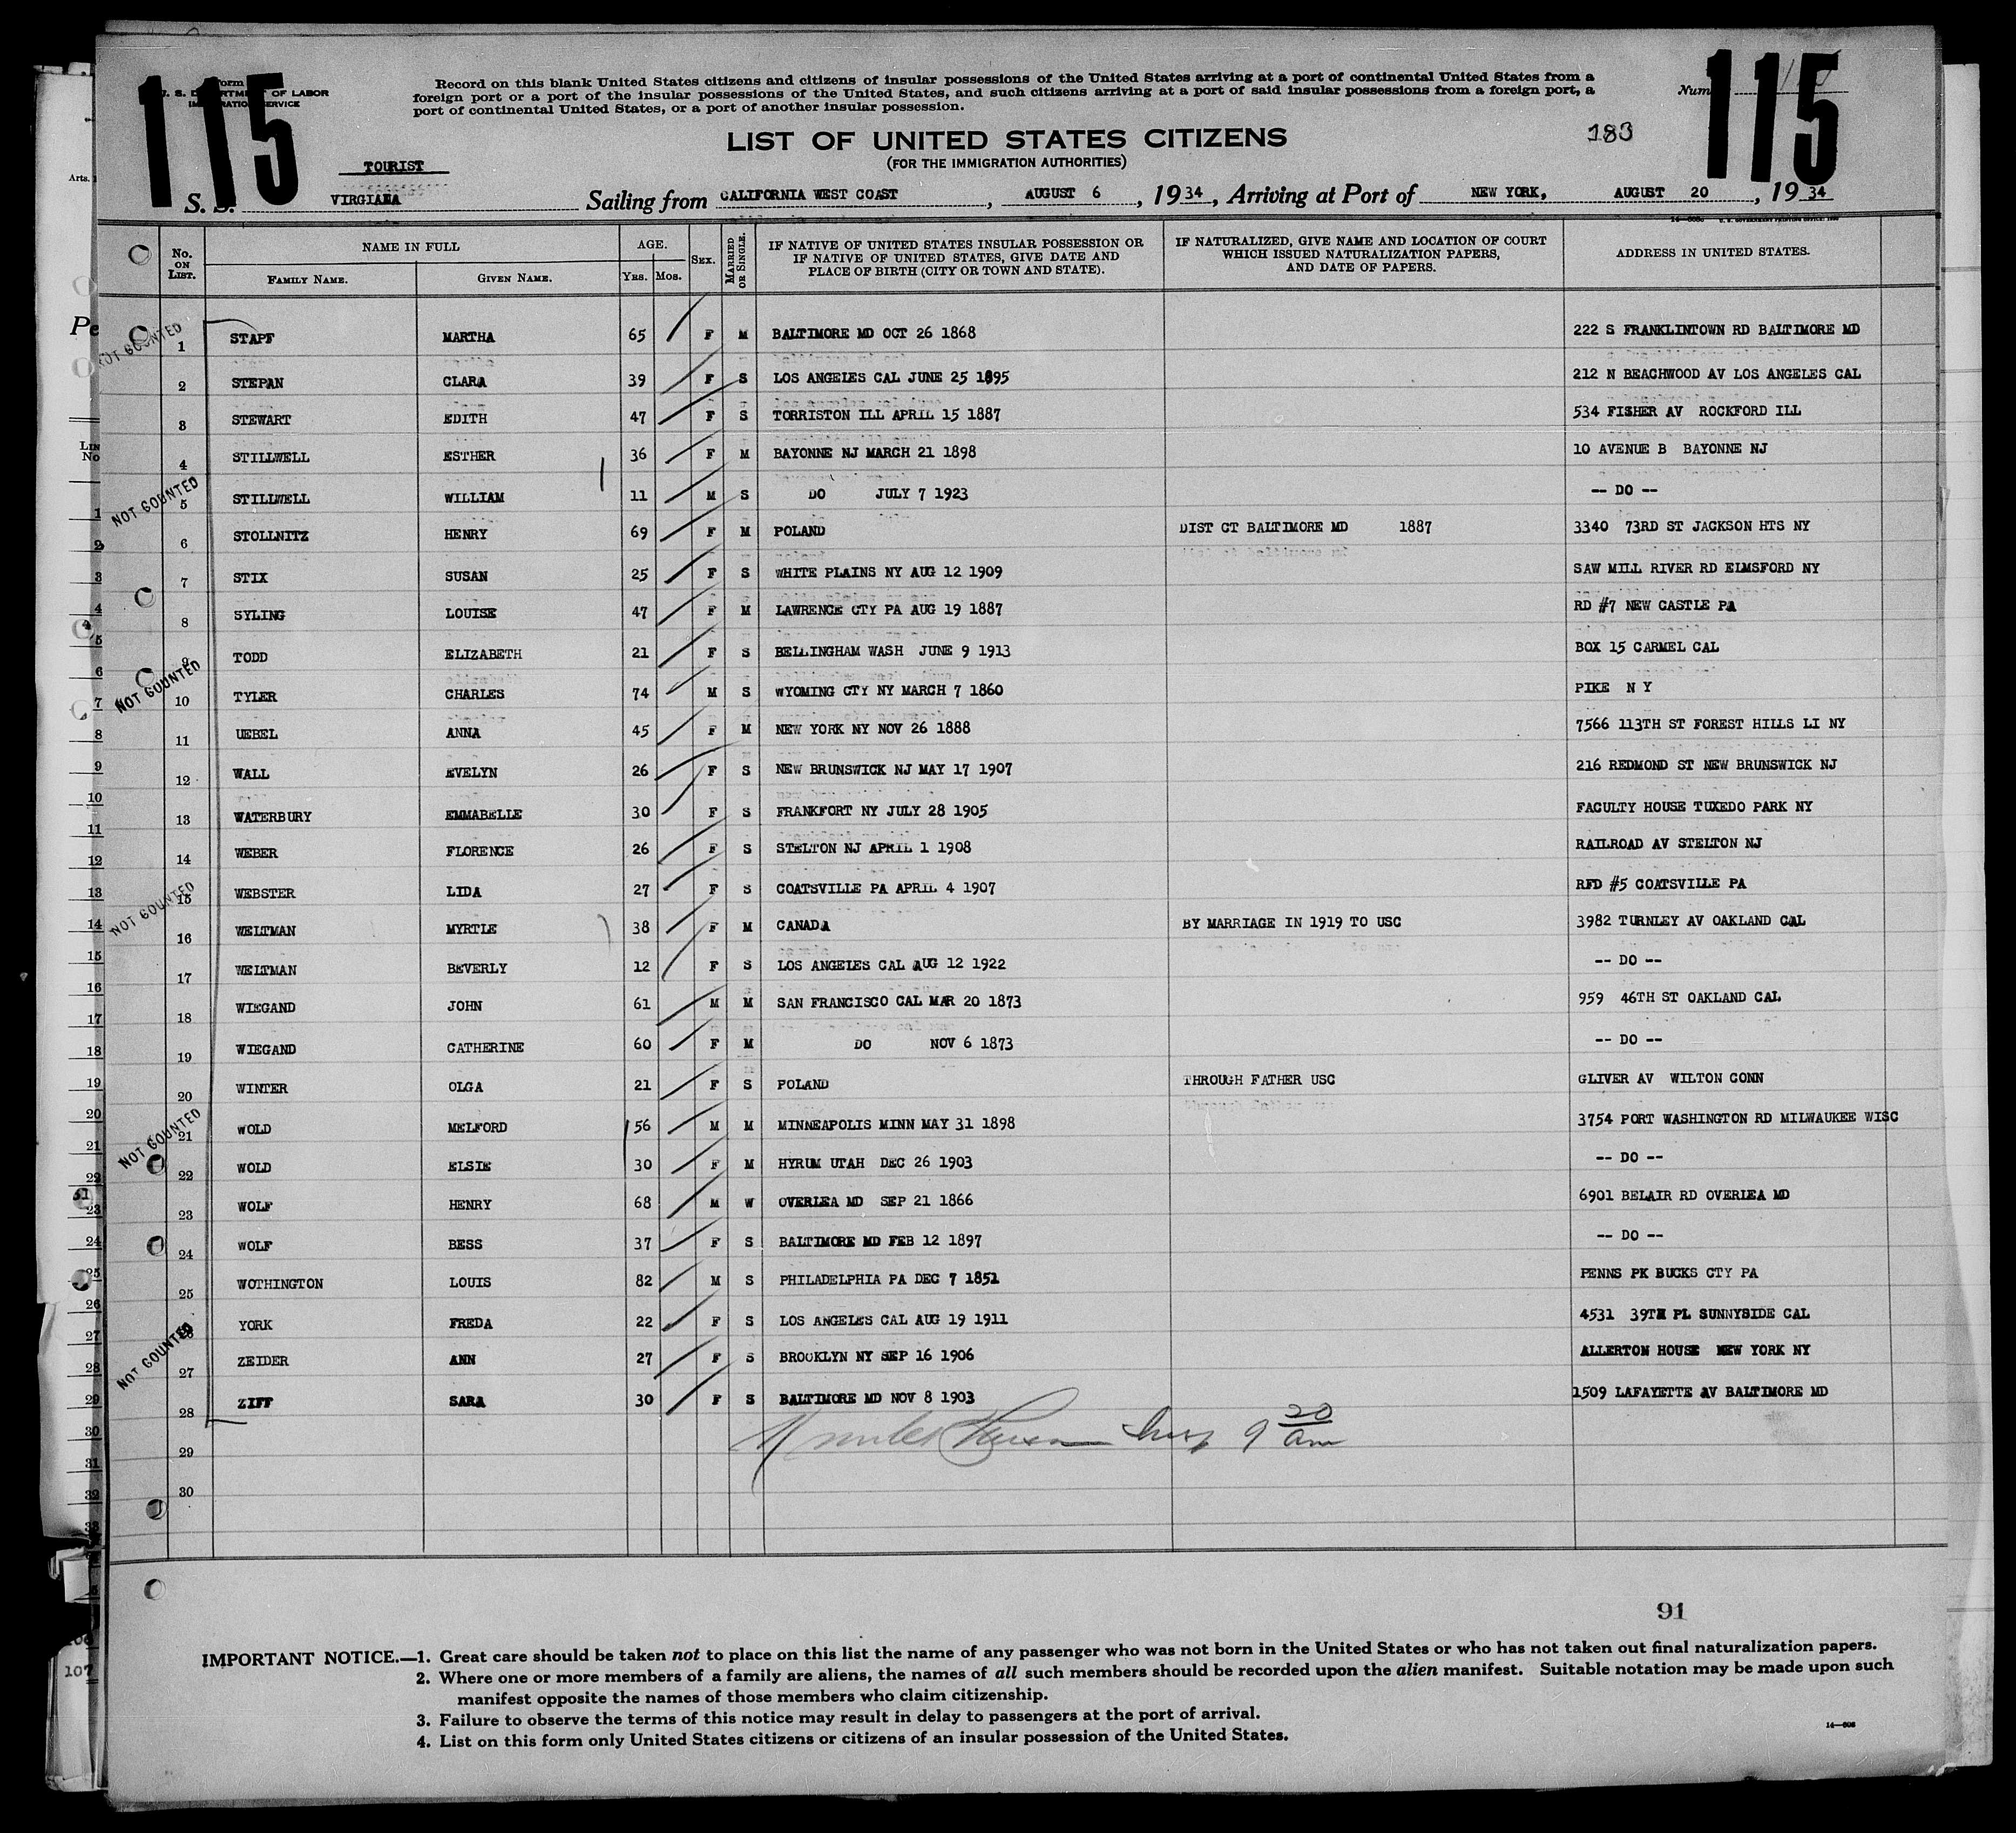 115
115
Form
U. S. DEPARTMENT OF LABOR
IMMIGRATION SERVICE
Record on this blank United States citizens and citizens of insular possessions of the United States arriving at a port of continental United States from a
foreign port or a port of the insular possessions of the United States, and such citizens arriving at a port of said insular possessions from a foreign port, a
port of continental United States, or a port of another insular possession.
Num
LIST OF UNITED STATES CITIZENS
183
(FOR THE IMMIGRATION AUTHORITIES)
TOURIST
S. S. VIRGIANA Sailing from CALIFORNIA WEST COAST, AUGUST 6, 1934, Arriving at Port of NEW YORK, AUGUST 20, 1934
No. ON LIST. NAME IN FULL AGE. SEX. MARRIED OR SINGLE. IF NATIVE OF UNITED STATES INSULAR POSSESSION OR IF NATIVE OF UNITED STATES, GIVE DATE AND PLACE OF BIRTH (CITY OR TOWN AND STATE). IF NATURALIZED, GIVE NAME AND LOCATION OF COURT WHICH ISSUED NATURALIZATION PAPERS, AND DATE OF PAPERS. ADDRESS IN UNITED STATES.
FAMILY NAME. GIVEN NAME. YRS. MOS.
NOT COUNTED
1 STAPF MARTHA 65 F M BALTIMORE MD OCT 26 1868 222 S FRANKLINTOWN RD BALTIMORE MD
2 STEPAN CLARA 39 F S LOS ANGELES CAL JUNE 25 1895 212 N BEACHWOOD AV LOS ANGELES CAL
3 STEWART EDITH 47 F S TORRISTON ILL APRIL 15 1887 534 FISHER AV ROCKFORD ILL
4 STILLWELL ESTHER 36 F M BAYONNE NJ MARCH 21 1898 10 AVENUE B BAYONNE NJ
NOT COUNTED
5 STILLWELL WILLIAM 11 M S DO JULY 7 1923 -- DO --
6 STOLLNITZ HENRY 69 F M POLAND DIST CT BALTIMORE MD 1887 3340 73RD ST JACKSON HTS NY
7 STIX SUSAN 25 F S WHITE PLAINS NY AUG 12 1909 SAW MILL RIVER RD ELMSFORD NY
8 SYLING LOUISE 47 F M LAWRENCE CTY PA AUG 19 1887 RD #7 NEW CASTLE PA
9 TODD ELIZABETH 21 F S BELLINGHAM WASH JUNE 9 1913 BOX 15 CARMEL CAL
NOT COUNTED
10 TYLER CHARLES 74 M S WYOMING CTY NY MARCH 7 1860 PIKE N Y
11 UEBEL ANNA 45 F M NEW YORK NY NOV 26 1888 7566 113TH ST FOREST HILLS LI NY
12 WALL EVELYN 26 F S NEW BRUNSWICK NJ MAY 17 1907 216 REDMOND ST NEW BRUNSWICK NJ
13 WATERBURY EMMABELLE 30 F S FRANKFORT NY JULY 28 1905 FACULTY HOUSE TUXEDO PARK NY
14 WEBER FLORENCE 26 F S STELTON NJ APRIL 1 1908 RAILROAD AV STELTON NJ
NOT COUNTED
15 WEBSTER LIDA 27 F S COATSVILLE PA APRIL 4 1907 RFD #5 COATSVILLE PA
16 WELTMAN MYRTLE 38 F M CANADA BY MARRIAGE IN 1919 TO USC 3982 TURNLEY AV OAKLAND CAL
17 WELTMAN BEVERLY 12 F S LOS ANGELES CAL AUG 12 1922 -- DO --
18 WIEGAND JOHN 61 M M SAN FRANCISCO CAL MAR 20 1873 959 46TH ST OAKLAND CAL
19 WIEGAND CATHERINE 60 F M DO NOV 6 1873 -- DO --
20 WINTER OLGA 21 F S POLAND THROUGH FATHER USC GLIVER AV WILTON CONN
NOT COUNTED
21 WOLD MELFORD 56 M M MINNEAPOLIS MINN MAY 31 1898 3754 PORT WASHINGTON RD MILWAUKEE WISC
22 WOLD ELSIE 30 F M HYRUM UTAH DEC 26 1903 -- DO --
23 WOLF HENRY 68 M W OVERLEA MD SEP 21 1866 6901 BELAIR RD OVERLEA MD
24 WOLF BESS 37 F S BALTIMORE MD FEB 12 1897 -- DO --
25 WOTHINGTON LOUIS 82 M S PHILADELPHIA PA DEC 7 1851 PENNS PK BUCKS CTY PA
26 YORK FREDA 22 F S LOS ANGELES CAL AUG 19 1911 4531 39TH PL SUNNYSIDE CAL
NOT COUNTED
27 ZEIDER ANN 27 F S BROOKLYN NY SEP 16 1906 ALLERTON HOUSE NEW YORK NY
28 ZIFF SARA 30 F S BALTIMORE MD NOV 8 1903 1509 LAFAYETTE AV BALTIMORE MD
9 20 am
29
30
91
IMPORTANT NOTICE.—1. Great care should be taken not to place on this list the name of any passenger who was not born in the United States or who has not taken out final naturalization papers.
2. Where one or more members of a family are aliens, the names of all such members should be recorded upon the alien manifest. Suitable notation may be made upon such
manifest opposite the names of those members who claim citizenship.
3. Failure to observe the terms of this notice may result in delay to passengers at the port of arrival.
4. List on this form only United States citizens or citizens of an insular possession of the United States.